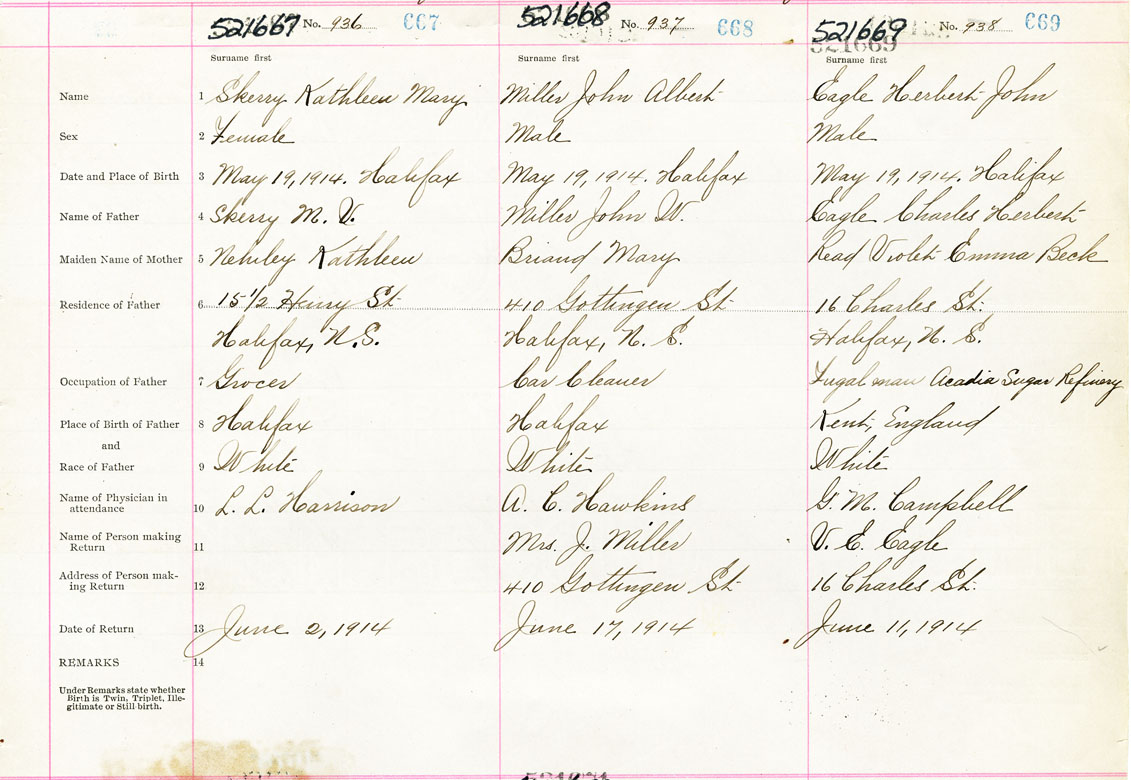 521667 No. 936 667 521668 No. 937 668 521669 No. 938 669
521669
Surname first Surname first Surname first
Name 1 Skerry Kathleen Mary Miller John Albert Eagle Herbert John
Sex 2 Female Male Male
Date and Place of Birth 3 May 19, 1914. Halifax May 19, 1914. Halifax May 19, 1914. Halifax
Name of Father 4 Skerry M. V. Miller John W. Eagle Charles Herbert
Maiden Name of Mother 5 Kathleen Briand Mary Read Violet Emma Beck
Residence of Father 6 15 1/2 Henry St 410 Gottingen St 16 Charles St.
Halifax, N.S. Halifax, N. S. Halifax, N. S.
Occupation of Father 7 Grocer Car Cleaner man Acadia Sugar Refinery
Place of Birth of Father 8 Halifax Halifax Kent, England
and
Race of Father 9 White White White
Name of Physician in
attendance 10 L. L. Harrison A. C. Hawkins G. M. Campbell
Name of Person making
Return 11 Mrs. J. Miller V. E. Eagle
Address of Person mak-
ing Return 12 410 Gottingen St 16 Charles St.
Date of Return 13 June 2, 1914 June 17, 1914 June 11, 1914
REMARKS 14
Under Remarks state whether
Birth is Twin, Triplet, Ille-
gitimate or Still-birth.